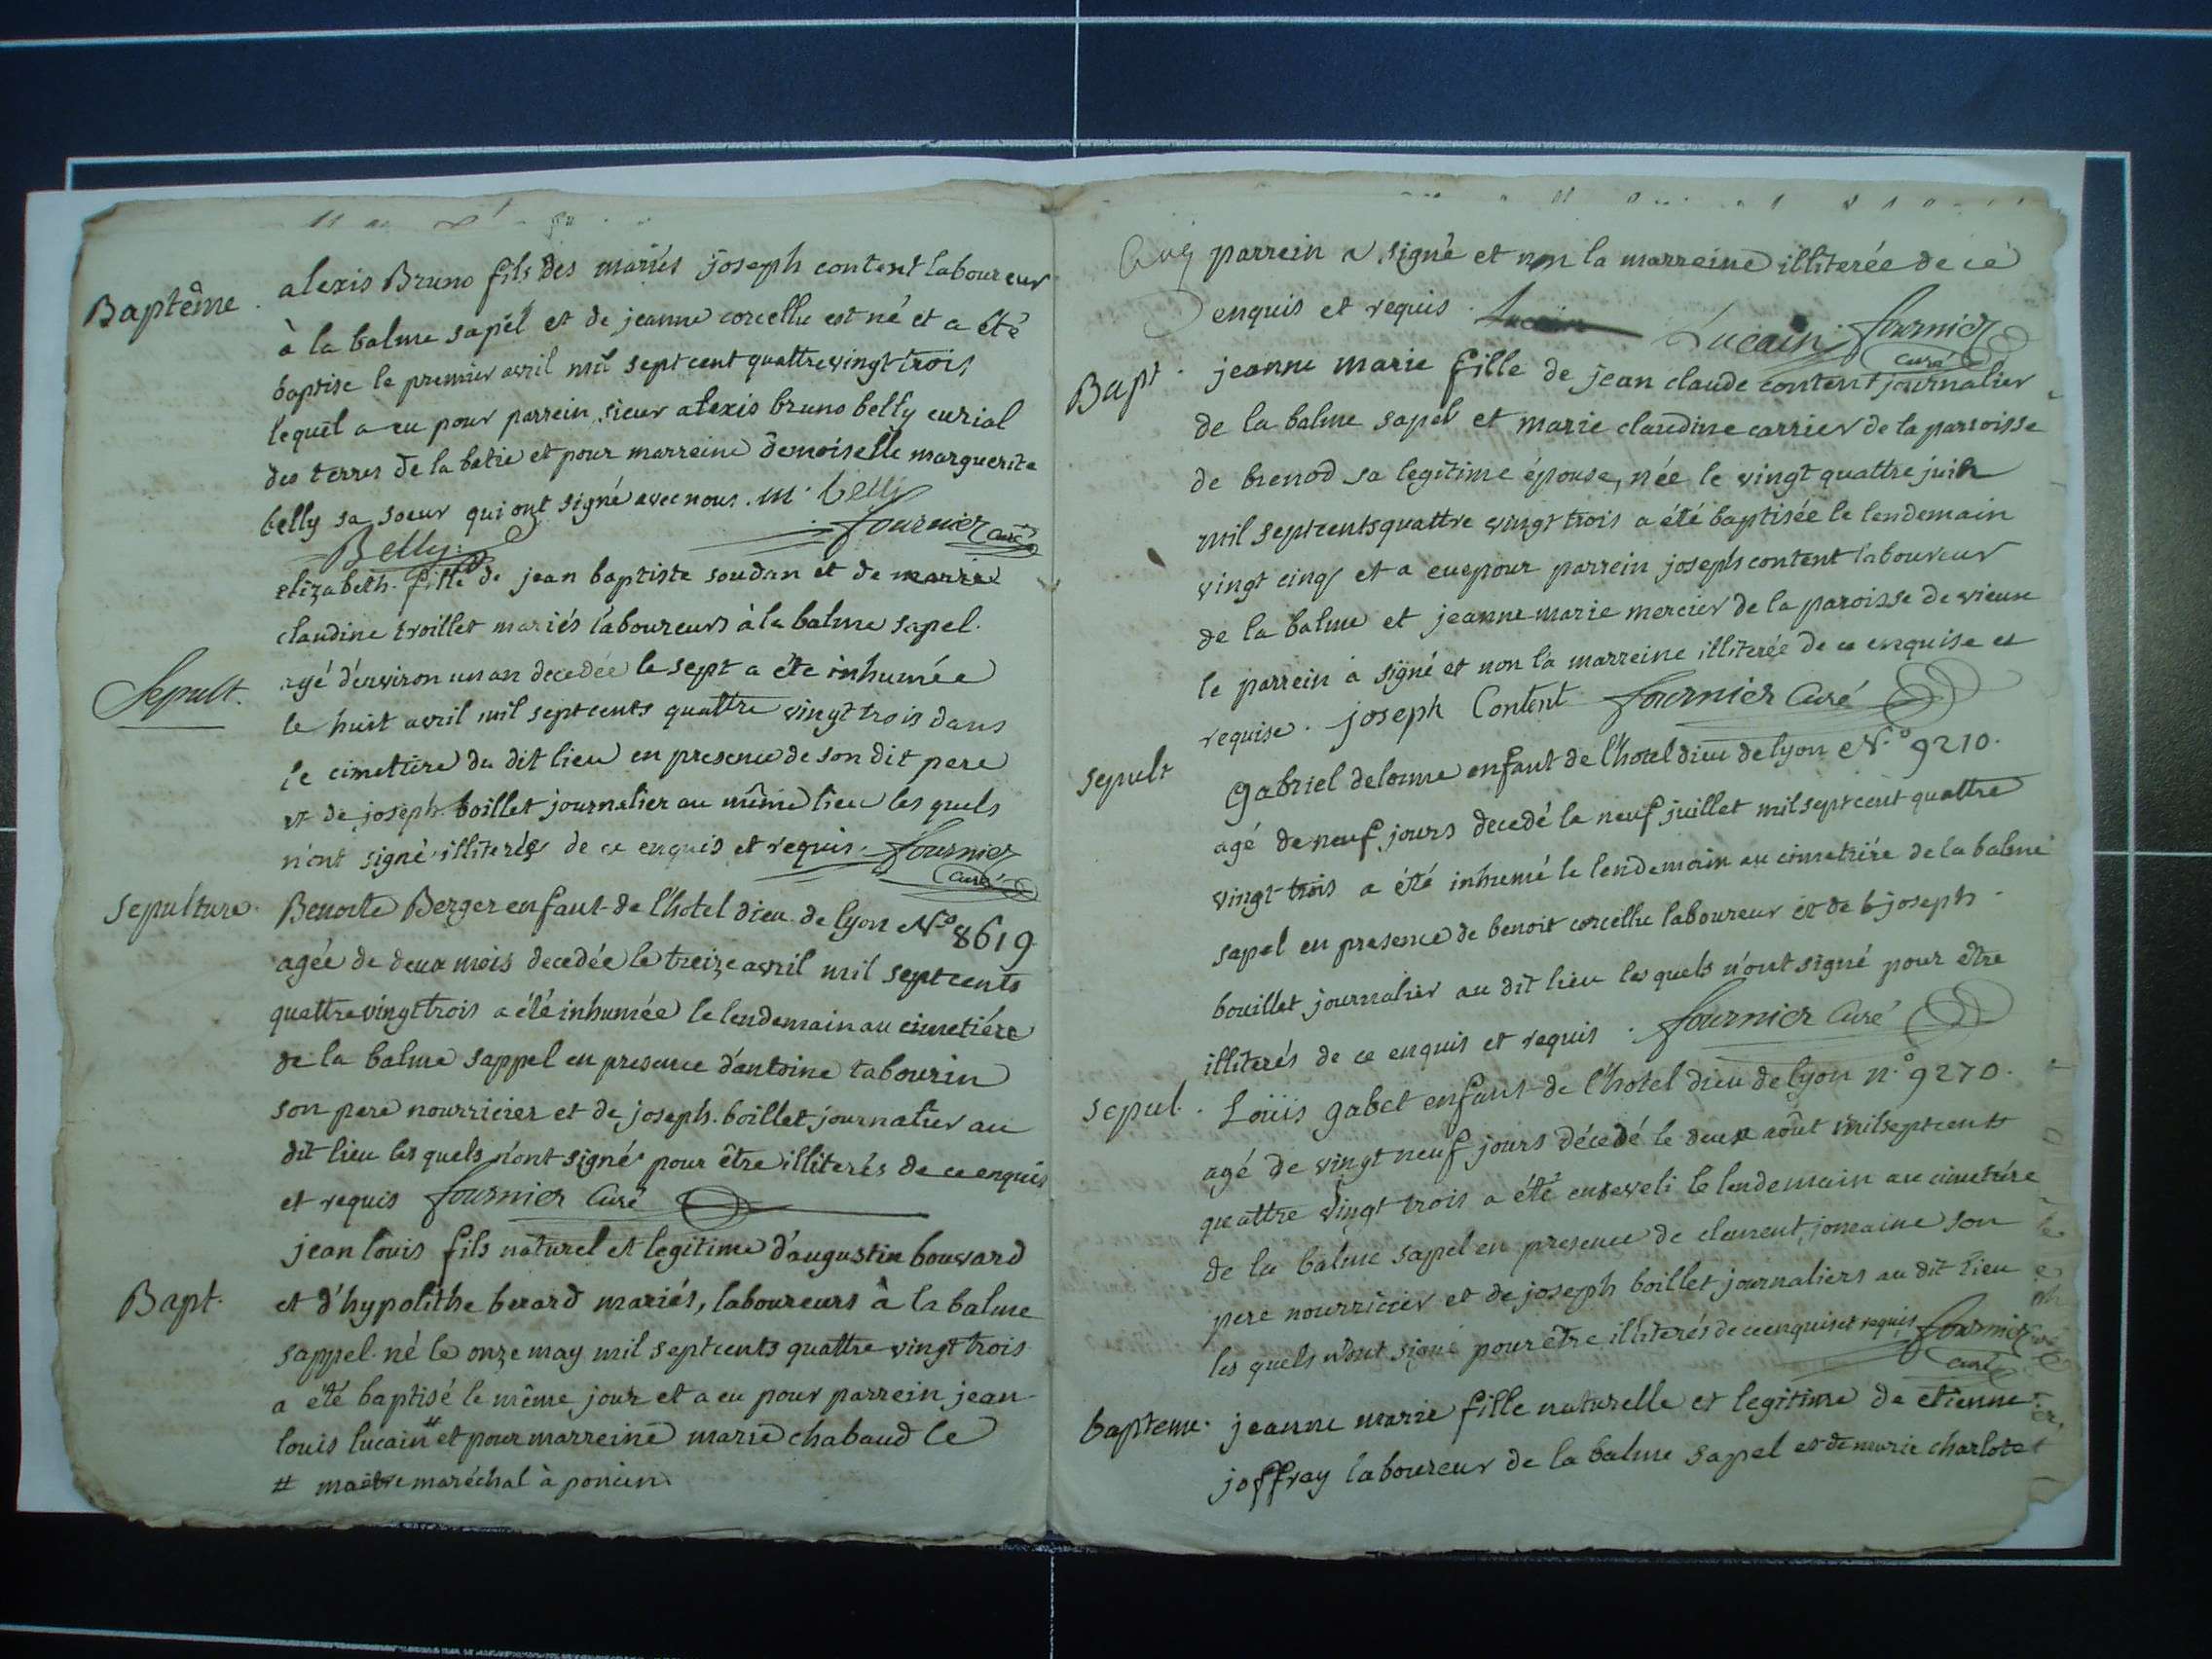 Baptême. alexis Bruno fils des mariés joseph content laboureur
à la balme sapel et de jeanne corcellu est né et a été
baptise le premier avril mil sept cent quattre vingt trois
lequel a eu pour parrein sieur alexis bruno belly curial
des terres de la batie et pour marreine demoiselle marguerite
belly sa soeur qui ont signé avec nous. m. belly
Belly fournier curé
elizabeth fille de jean baptiste soudan et de marie
claudine troillet mariés laboureurs à la balme sapel.
Sepult. agé d'environ un an decedée le sept a été inhumée
le huit avril mil septcents quattre vingt trois dans
le cimetiere du dit lieu en presence de son dit pere
et de joseph boillet journalier au même lieu les quels
n'ont signé illiterés de ce enquis et requis. fournier
curé
Sepulture. Benoite Berger enfant de l'hotel dieu de lyon No 8619
agée de deux mois decedée le treize avril mil septcents
quattre vingt trois a été inhumée le lendemain au cimetiére
de la balme sappel en presence d'antoine tabourin
son pere nourricier et de joseph boillet journalier au
dit lieu les quels n'ont signé pour être illiterés de ce enquis
et requis fournier Curé
jean louis fils naturel et legitime d'augustin bouvard
Bapt. et d'hypolithe berard mariés, laboureurs à la balme
sappel né le onze may mil septcents quattre vingt trois
a été baptisé le même jour et a eu pour parrein jean
louis lucain # et pour marreine marie chabaud le
# maitre maréchal à poncin
parrein a signé et non la marreine illiterée de ce
enquis et requis. Lucain fournier
curé
Bapt. jeanne marie fille de jean claude content journalier
de la balme sapel et marie claudine carrier de la parroisse
de brenod sa legitime épouse, née le vingt quattre juin
mil septcents quattre vingt trois a été baptisée le lendemain
vingt cinq et a eue pour parrein joseph content laboureur
de la balme et jeanne marie mercier de la paroisse de vieux
le parrein a signé et non la marreine illiterée de ce enquise et
requise. joseph Content fournier Curé
sepult gabriel delorme enfant de l'hotel dieu de lyon N.o 9210.
agé de neuf jours decedé le neuf juillet mil septcent quattre
vingt trois a été inhumé le lendemain au cimetiére de la balme
sapel en presence de benoit corcellu laboureur et de joseph
bouillet journalier au dit lieu les quels n'ont signé pour être
illiterés de ce enquis et requis. fournier Curé
sepul. Loüis gabet enfant de l'hotel dieu de lyon n.o 9270.
agé de vingt neuf jours décedé le deux août mil septcents
quattre vingt trois a été enseveli le lendemain au cimetiére
de la balme sapel en presence de clement joncaine son
pere nourricier et de joseph boillet journaliers au dit lieu
les quels n'ont signé pour être illiterés de ce enquis et requis fournier
curé
bapteme. jeanne marie fille naturelle et legitime de etienne
joffray laboureur de la balme sapel et de marie charlotet